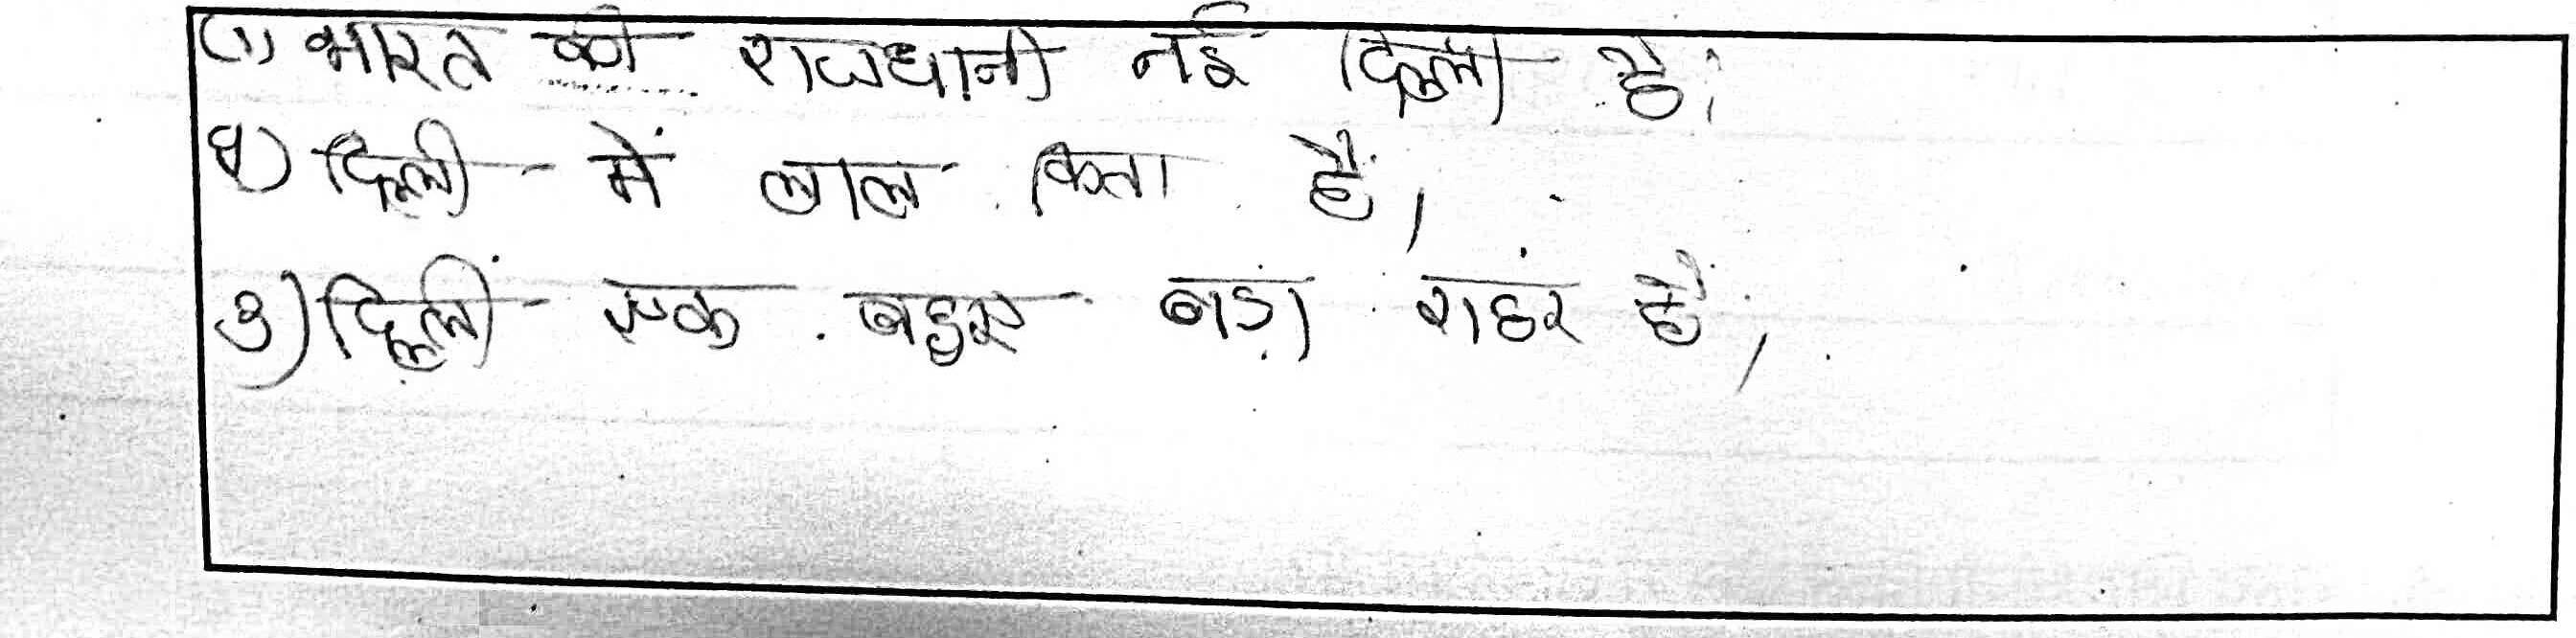 (1) भारत की राजधानी नई दिल्ली है।
2) दिल्ली में लाल किला है,
3) दिल्ली एक बहुत बड़ा शहर है,